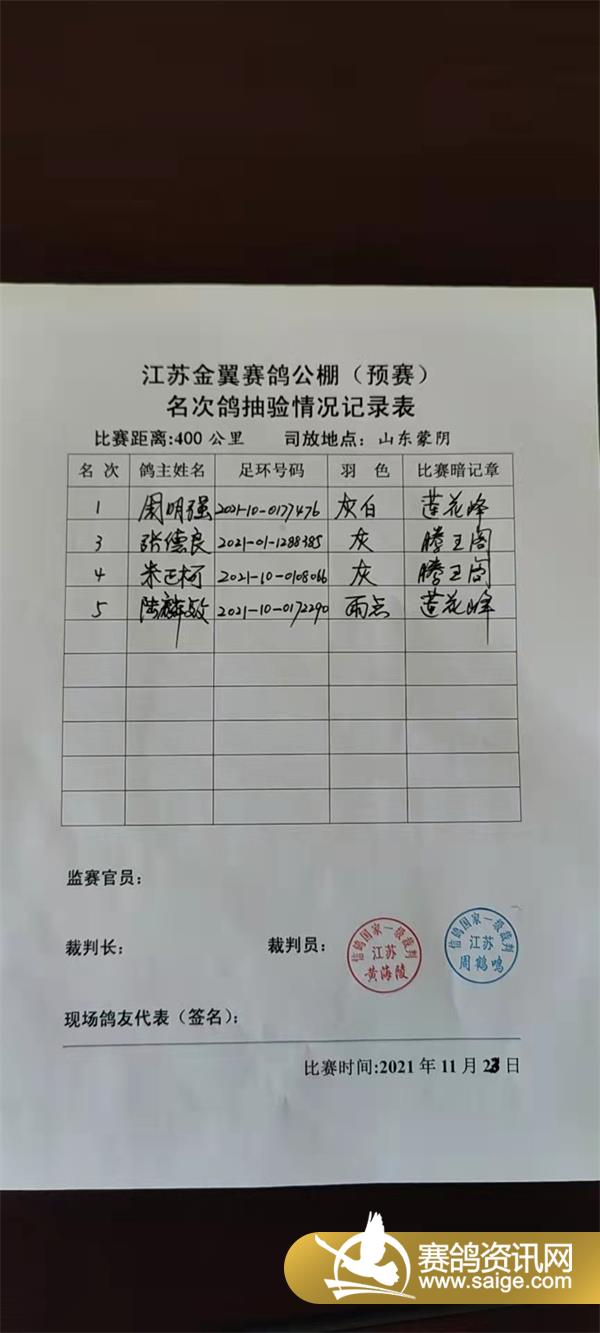 江苏金翼赛鸽公棚（预赛）
名次鸽抽验情况记录表
比赛距离:400 公里 司放地点：山东蒙阴
名 次 鸽主姓名 足环号码 羽 色 比赛暗记章
1 周明强 2021-10-0177476 灰白 莲花峰
3 张德良 2021-01-1288385 灰 腾王阁
4 朱正柯 2021-10-0108066 灰 腾王阁
5 陆麟毅 2021-10-0172290 雨点 莲花峰
监赛官员：
裁判长： 裁判员：
信鸽国家一级裁判
江苏
黄海陵
信鸽国家一级裁判
江苏
周鹤鸣
现场鸽友代表（签名）：
比赛时间:2021 年 11 月 23 日
赛鸽资讯网
www.saige.com